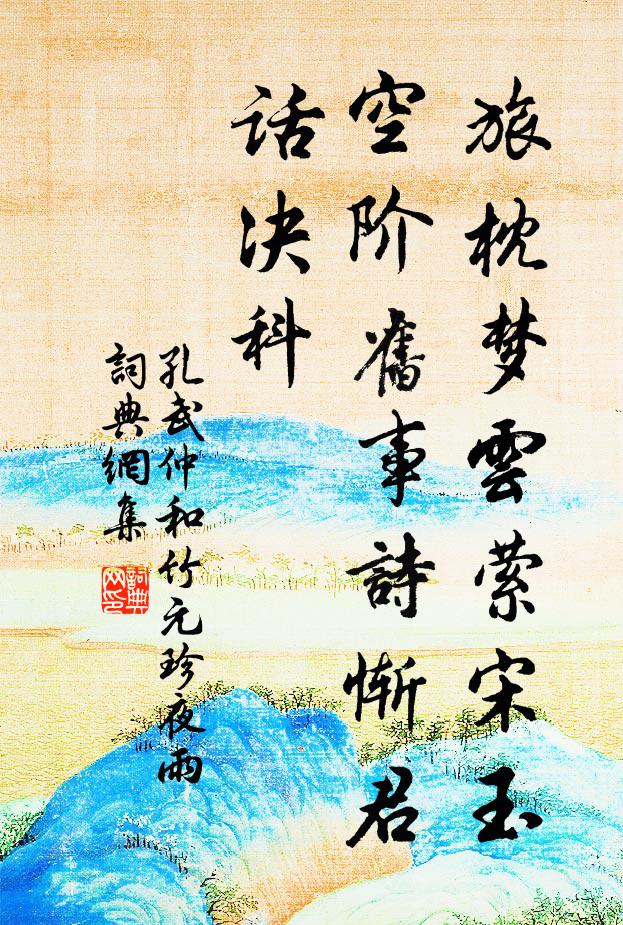 旅枕梦雲萦宋玉
空阶舊事詩慚君
话决科
孔武仲和竹元珍夜雨
詞典網集
詞典网印